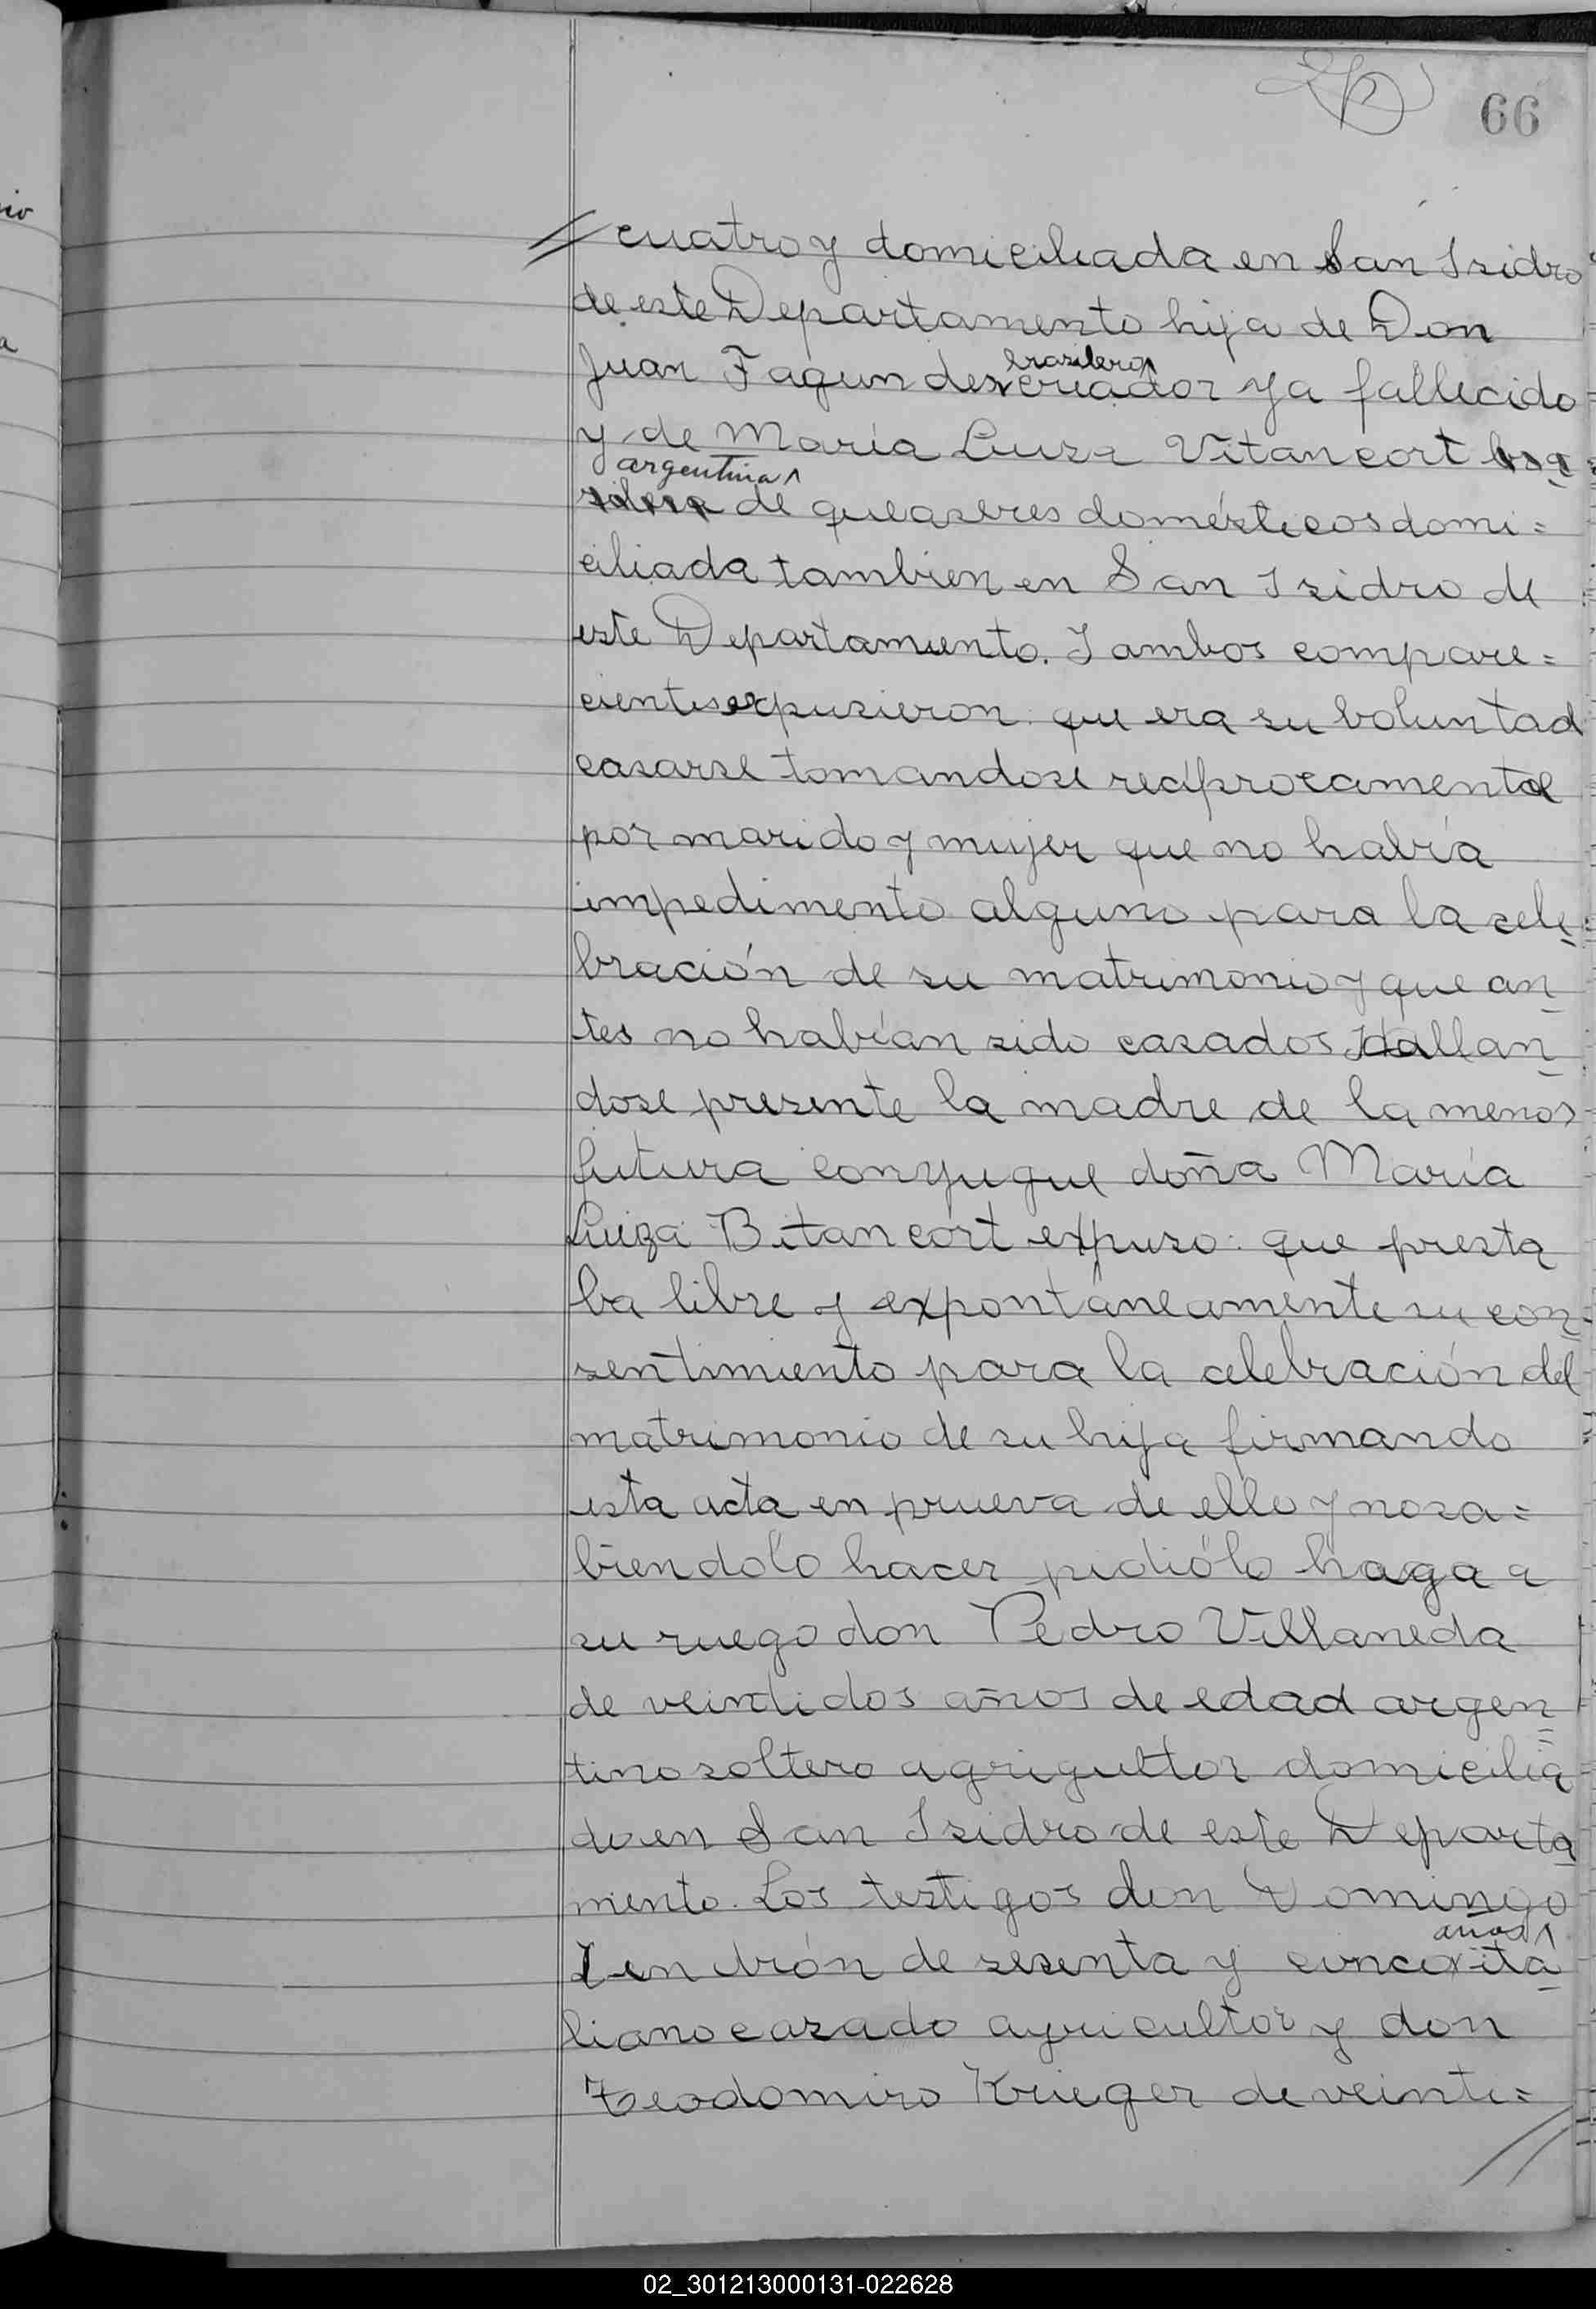 66
// cuatro y domiciliada en San Isidro
de este Departamento hija de Don
brasilero
Juan Fagundes criador ya fallecido
y de María Luiza Vitancort bra
argentina
silera de queaseres domésticos domi=
ciliada tambien en San Isidro de
este Departamento. I ambos compare=
cientes expusieron: que era su boluntad
casarse tomandose recíprocamente
por marido y mujer que no había
impedimento alguno para la sele
bración de su matrimonio y que an
tes no habían sido casados Hallan
dose presente la madre de la menor
futura conyugue doña María
Luiza Bitancort expuso: que presta
ba libre y expontáneamente su con
sentimiento para la celebración del
matrimonio de su hija firmando
esta acta en prueva de ello y no sa=
biendolo hacer pidió lo haga a
su ruego don Pedro Villaneda
de veintidos años de edad argen
tino soltero agrigultor domicilia
do en San Isidro de este Departa
mento. Los testigos don Domingo
años
Lendrón de sesenta y cinco ita
liano casado agricultor y don
Teodomiro Krieger de veinti=
//
02_301213000131-022628